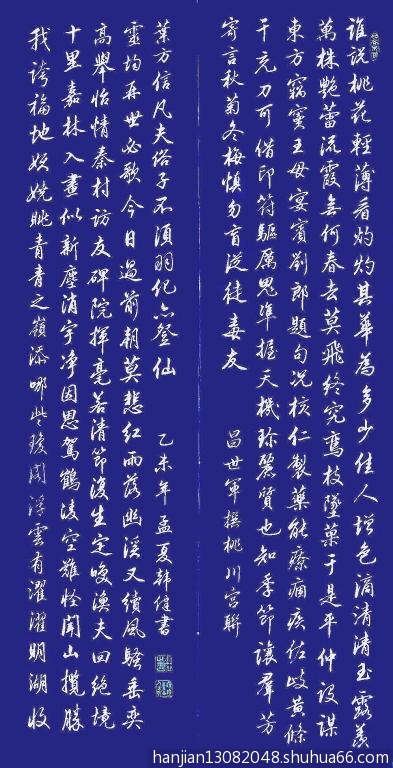 誰説桃花輕薄看灼灼其華為多少佳人增色滴清清玉露羨
萬株艷蕾流霞無何春去莫飛終究鸞枝墜菓于是平仲設謀
東方竊寶王母宴賓劉郎題句況核仁製藥能療痼疾佐歧黃條
干充刀可借印符驅厲鬼準握天機珍麗質也知季節讓羣芳
寄言秋菊冬梅慎勿盲從徒友
昌世軍撰桃川宮聯
我誇福地妖嬈眺青青之嶺添哪些閣浮雲有濯濯明湖收
十里嘉林入畫似新塵消宇净因思駕鶴淩空難怪聞山攬勝
高舉怡情秦村訪友碑院揮毫若清節復生定喚漁夫回絕境
靈均再世必歌今日過前朝莫悲紅雨落幽溪又續風騷乘奕
葉方信凡夫俗子不須羽化亦登仙
乙未年孟夏韓健書
hanjian13082048.shuhua66.com